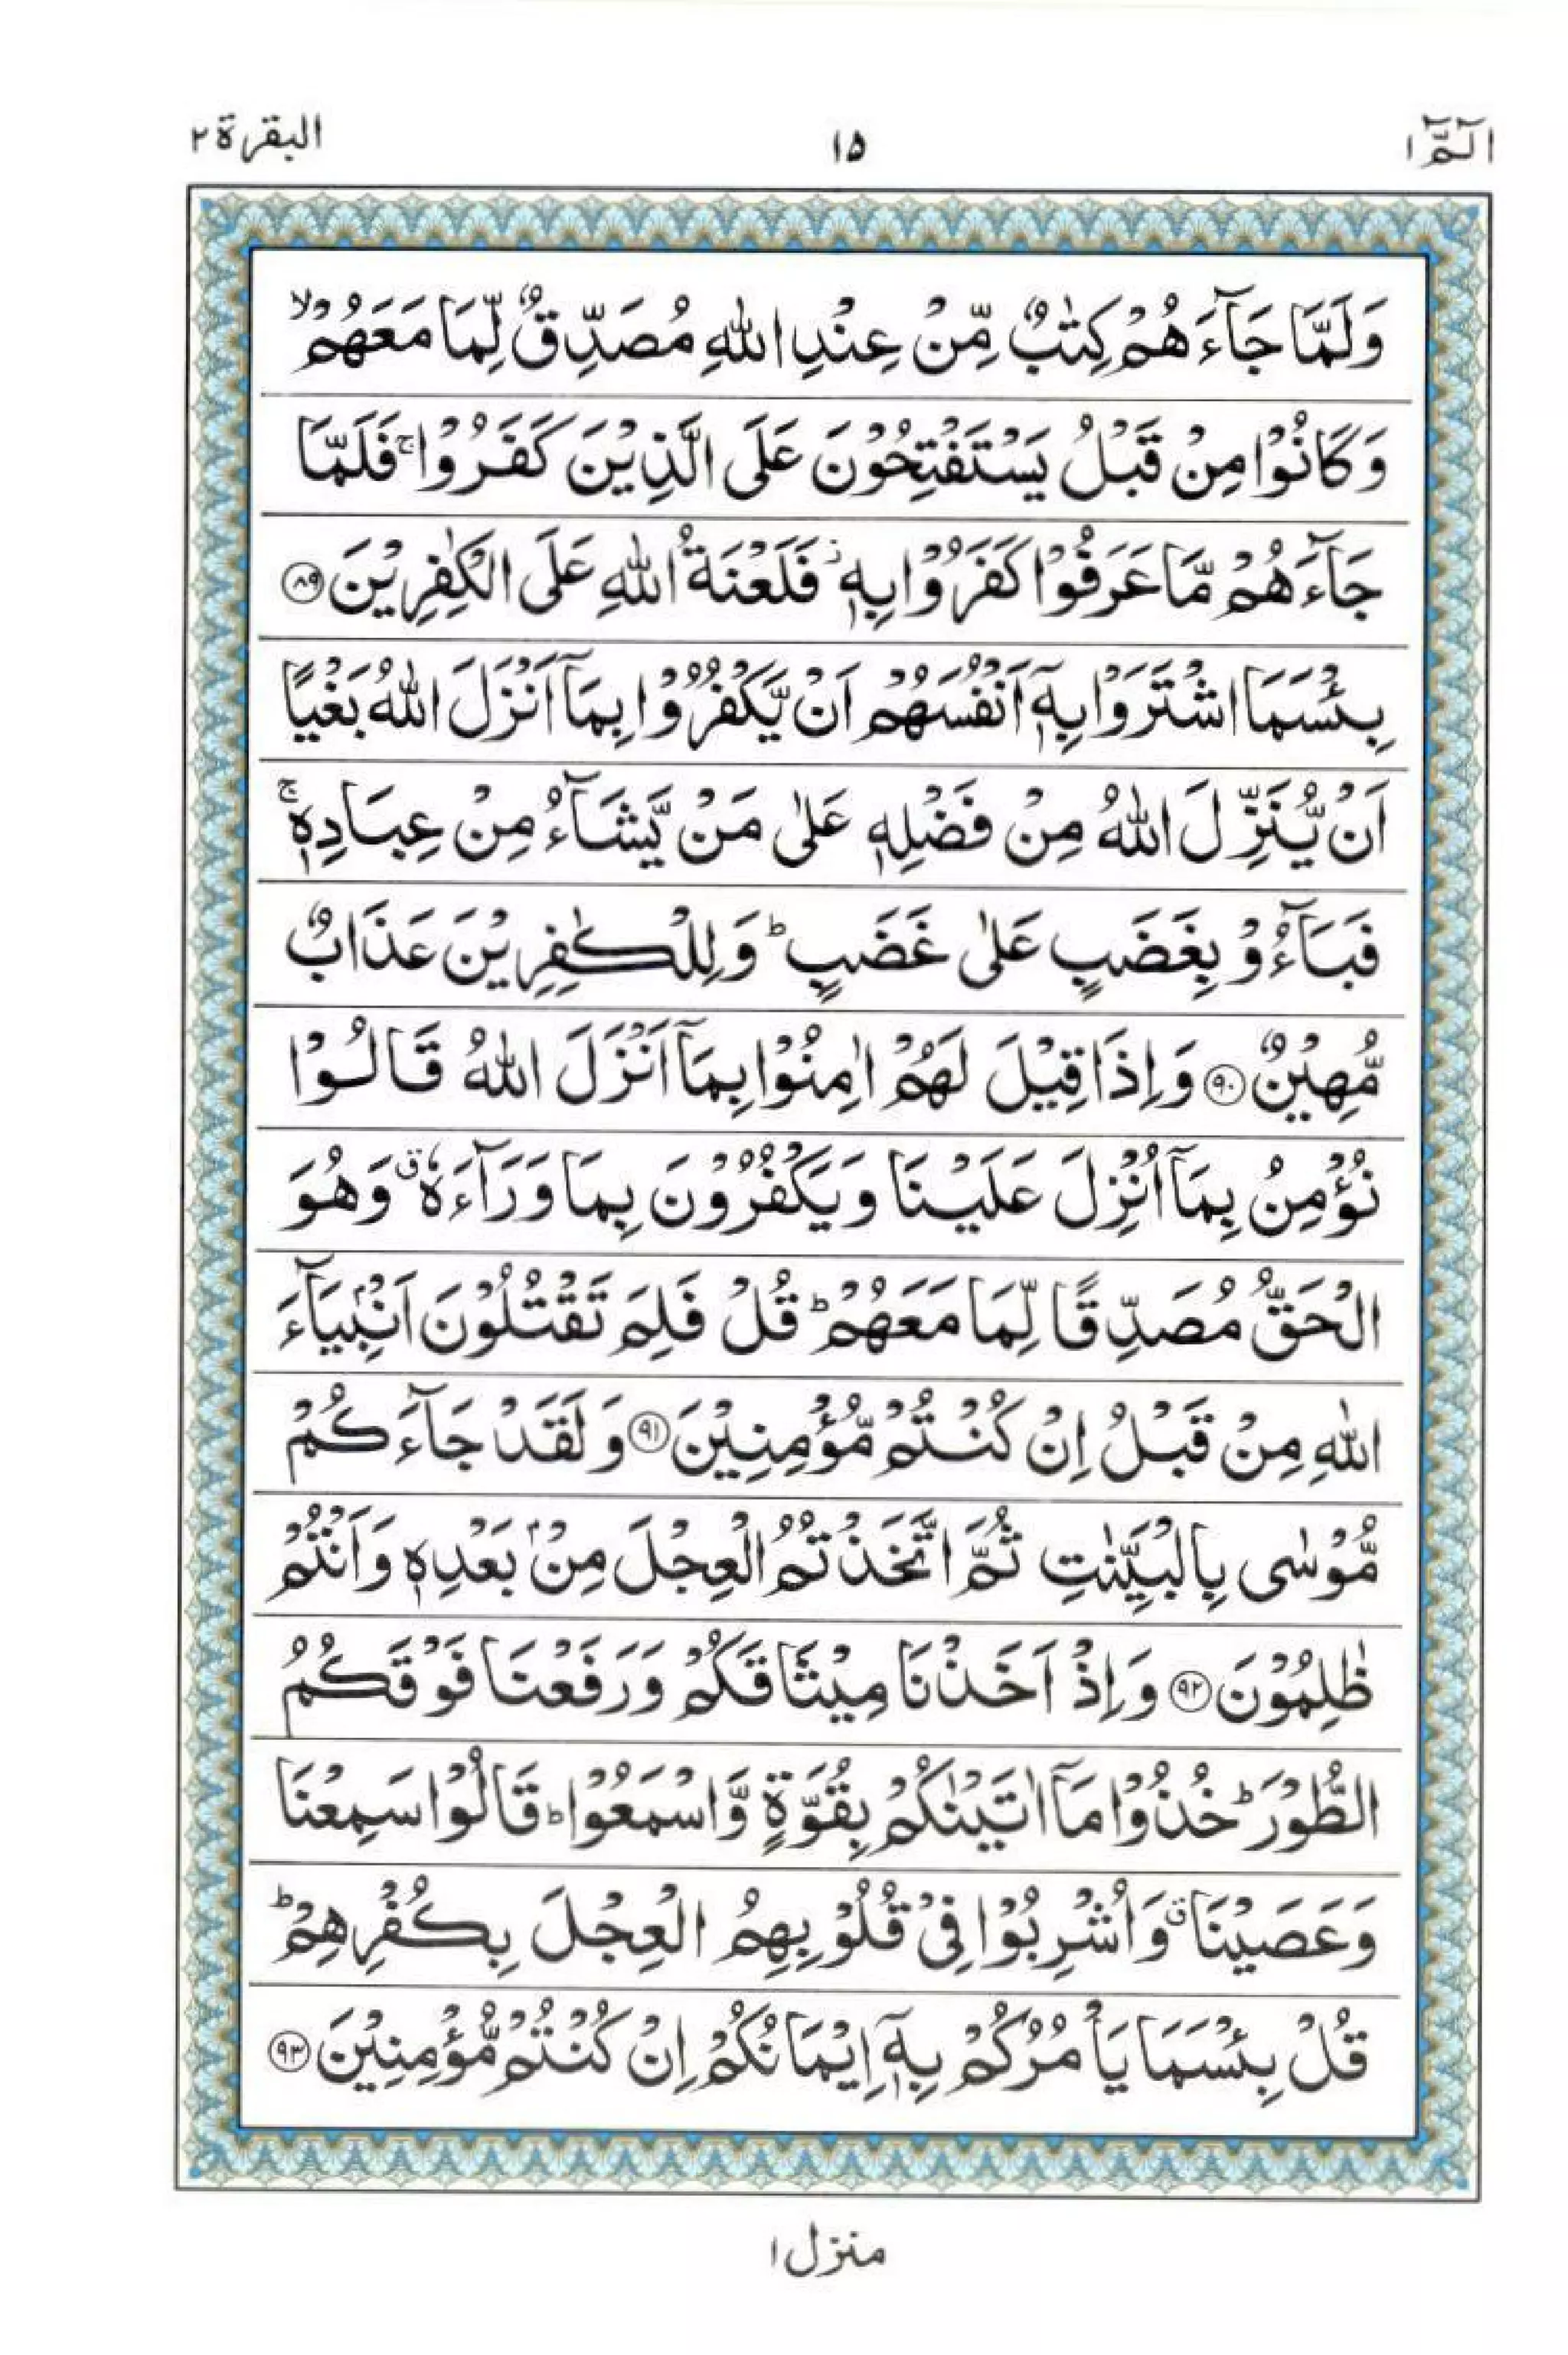 الٓمّٓ ١
١٥
البقرة ٢
وَلَمَّا جَآءَهُمْ كِتٰبٌ مِّنْ عِنْدِ اللّٰهِ مُصَدِّقٌ لِّمَا مَعَهُمْ ۙ
وَكَانُوْا مِنْ قَبْلُ يَسْتَفْتِحُوْنَ عَلَى الَّذِيْنَ كَفَرُوْا ۚ فَلَمَّا
جَآءَهُمْ مَّا عَرَفُوْا كَفَرُوْا بِهٖ ؗ فَلَعْنَةُ اللّٰهِ عَلَى الْكٰفِرِيْنَ ﴿۸۹﴾
بِئْسَمَا اشْتَرَوْا بِهٖۤ اَنْفُسَهُمْ اَنْ يَّكْفُرُوْا بِمَاۤ اَنْزَلَ اللّٰهُ بَغْيًا
اَنْ يُّنَزِّلَ اللّٰهُ مِنْ فَضْلِهٖ عَلٰى مَنْ يَّشَآءُ مِنْ عِبَادِهٖ ۚ
فَبَآءُوْ بِغَضَبٍ عَلٰى غَضَبٍ ؕ وَلِلْكٰفِرِيْنَ عَذَابٌ
مُّهِيْنٌ ﴿۹۰﴾ وَاِذَا قِيْلَ لَهُمْ اٰمِنُوْا بِمَاۤ اَنْزَلَ اللّٰهُ قَالُوْا
نُؤْمِنُ بِمَاۤ اُنْزِلَ عَلَيْنَا وَيَكْفُرُوْنَ بِمَا وَرَآءَهٗ ۗ وَهُوَ
الْحَقُّ مُصَدِّقًا لِّمَا مَعَهُمْ ؕ قُلْ فَلِمَ تَقْتُلُوْنَ اَنْۢبِيَآءَ
اللّٰهِ مِنْ قَبْلُ اِنْ كُنْتُمْ مُّؤْمِنِيْنَ ﴿۹۱﴾ وَلَقَدْ جَآءَكُمْ
مُّوْسٰى بِالْبَيِّنٰتِ ثُمَّ اتَّخَذْتُمُ الْعِجْلَ مِنْۢ بَعْدِهٖ وَاَنْتُمْ
ظٰلِمُوْنَ ﴿۹۲﴾ وَاِذْ اَخَذْنَا مِيْثَاقَكُمْ وَرَفَعْنَا فَوْقَكُمُ
الطُّوْرَ ؕ خُذُوْا مَاۤ اٰتَيْنٰكُمْ بِقُوَّةٍ وَّاسْمَعُوْا ؕ قَالُوْا سَمِعْنَا
وَعَصَيْنَا ۗ وَاُشْرِبُوْا فِيْ قُلُوْبِهِمُ الْعِجْلَ بِكُفْرِهِمْ ؕ
قُلْ بِئْسَمَا يَاْمُرُكُمْ بِهٖۤ اِيْمَانُكُمْ اِنْ كُنْتُمْ مُّؤْمِنِيْنَ ﴿۹۳﴾
منزل ١